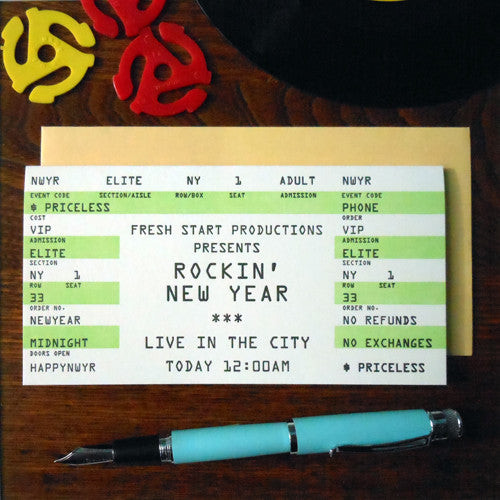 NWYR ELITE NY 1 ADULT NWYR
EVENT CODE SECTION/AISLE ROW/BOX SEAT ADMISSION EVENT CODE
$ PRICELESS
COST
VIP
ADMISSION
ELITE
SECTION
NY 1
ROW SEAT
33
ORDER NO.
NEWYEAR
MIDNIGHT
DOORS OPEN
HAPPYNWYR
FRESH START PRODUCTIONS
PRESENTS
ROCKIN'
NEW YEAR
***
LIVE IN THE CITY
TODAY 12:00AM
PHONE
ORDER
VIP
ADMISSION
ELITE
SECTION
NY 1
ROW SEAT
33
ORDER NO.
NO REFUNDS
NO EXCHANGES
$ PRICELESS